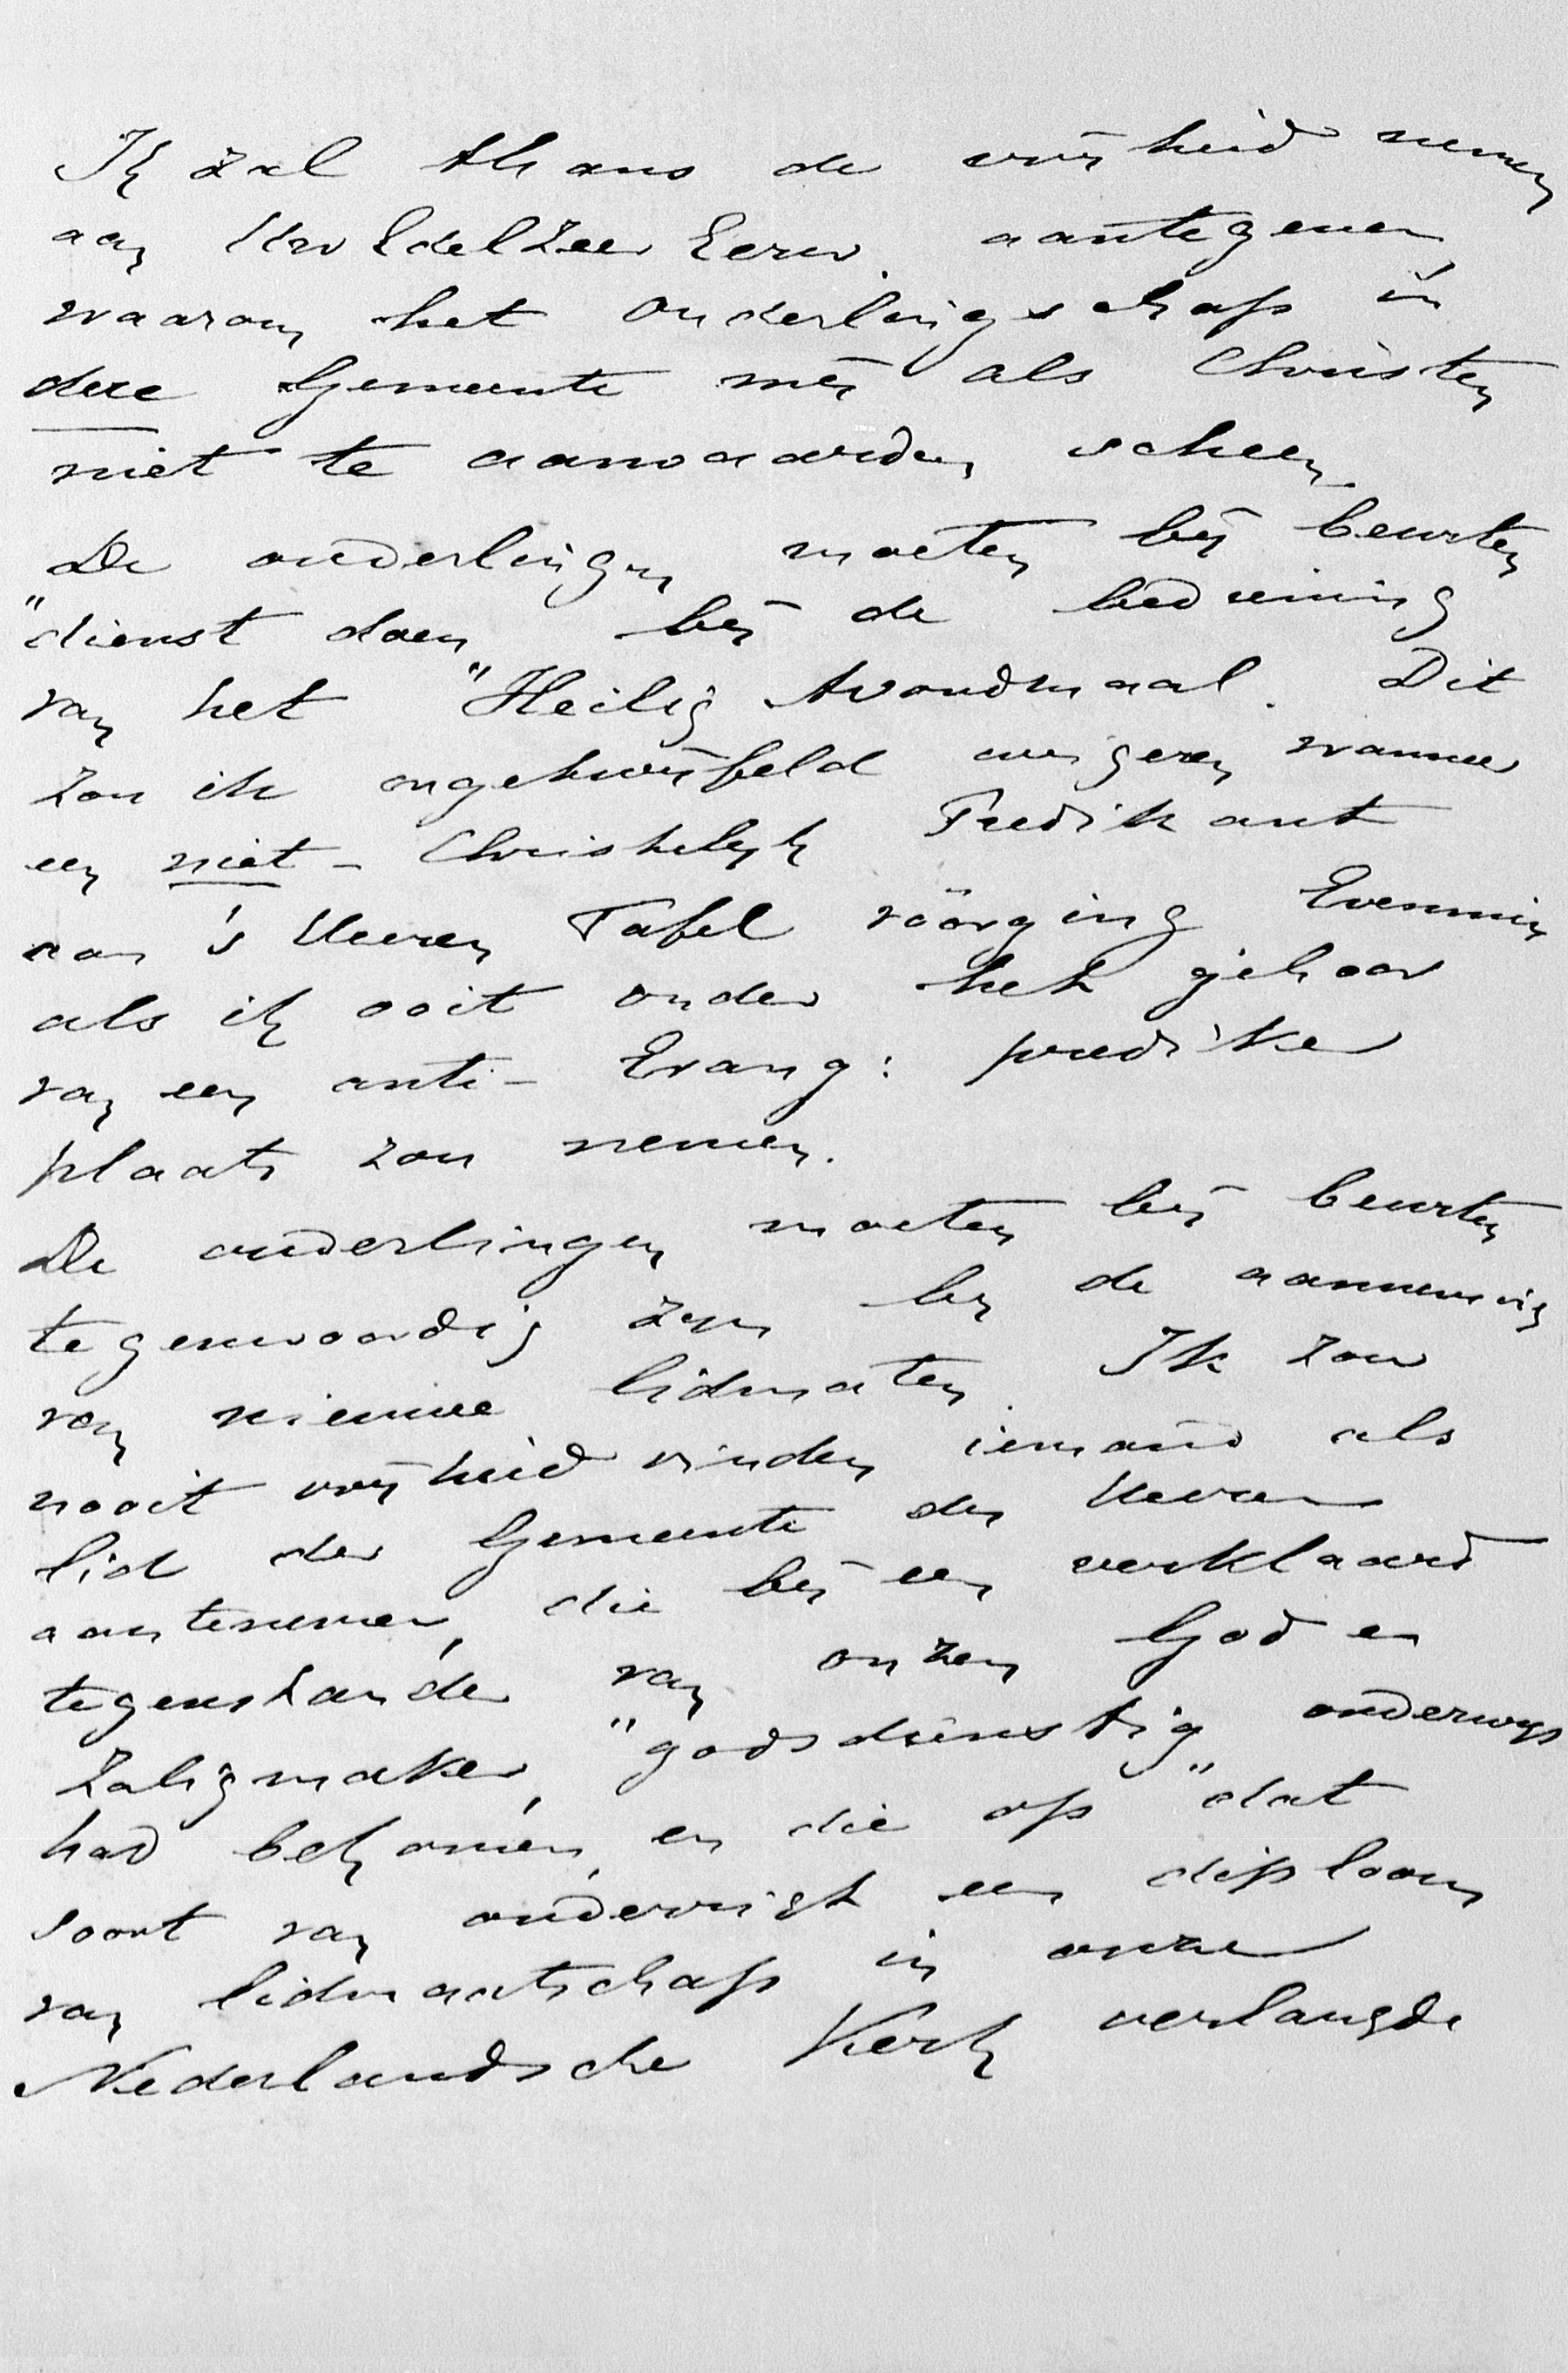 Ik zal thans de vrijheid nemen
aan UwEdelZeer Eerw. aantegeven
waarom het Ouderlingschap in
deze Gemeente mij als Christen
niet te aanvaarden scheen.
De ouderlingen moeten bij beurten
"dienst doen" bij de bediening
van het Heilig Avondmaal. Dit
zou ik ongetwijfeld weigeren wanneer
een niet-Christelijk Predikant
aan 's Heeren Tafel vóórging Evenmin
als ik ooit onder het gehoor
van een anti-Evang: prediker
plaats zou nemen.
De ouderlingen moeten bij beurten
tegenwoordig zijn bij de aanneming
van nieuwe lidmaten. Ik zou
nooit vrijheid vinden iemand als
lid der Gemeente des Heeren
aantenemen, die bij een verklaard
tegenstander van onzen God en
Zaligmaker, "godsdienstig onderwijs"
had bekomen, en die op dat
soort van onderrigt een diploom
van lidmaatschap in onze
Nederlandsche Kerk verlangde